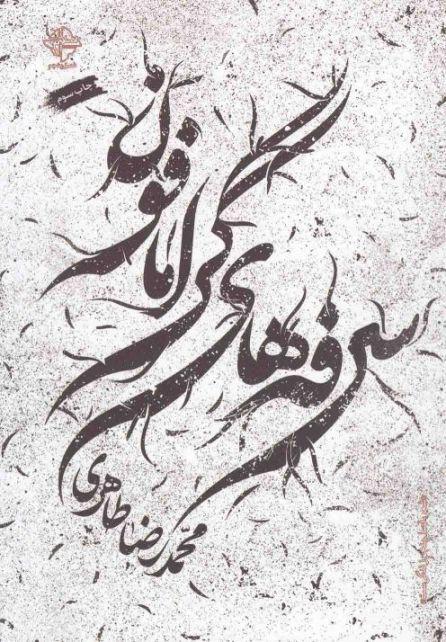 چاپ سوم
سرفه‌های
گرامافون
محمدرضا طاهری